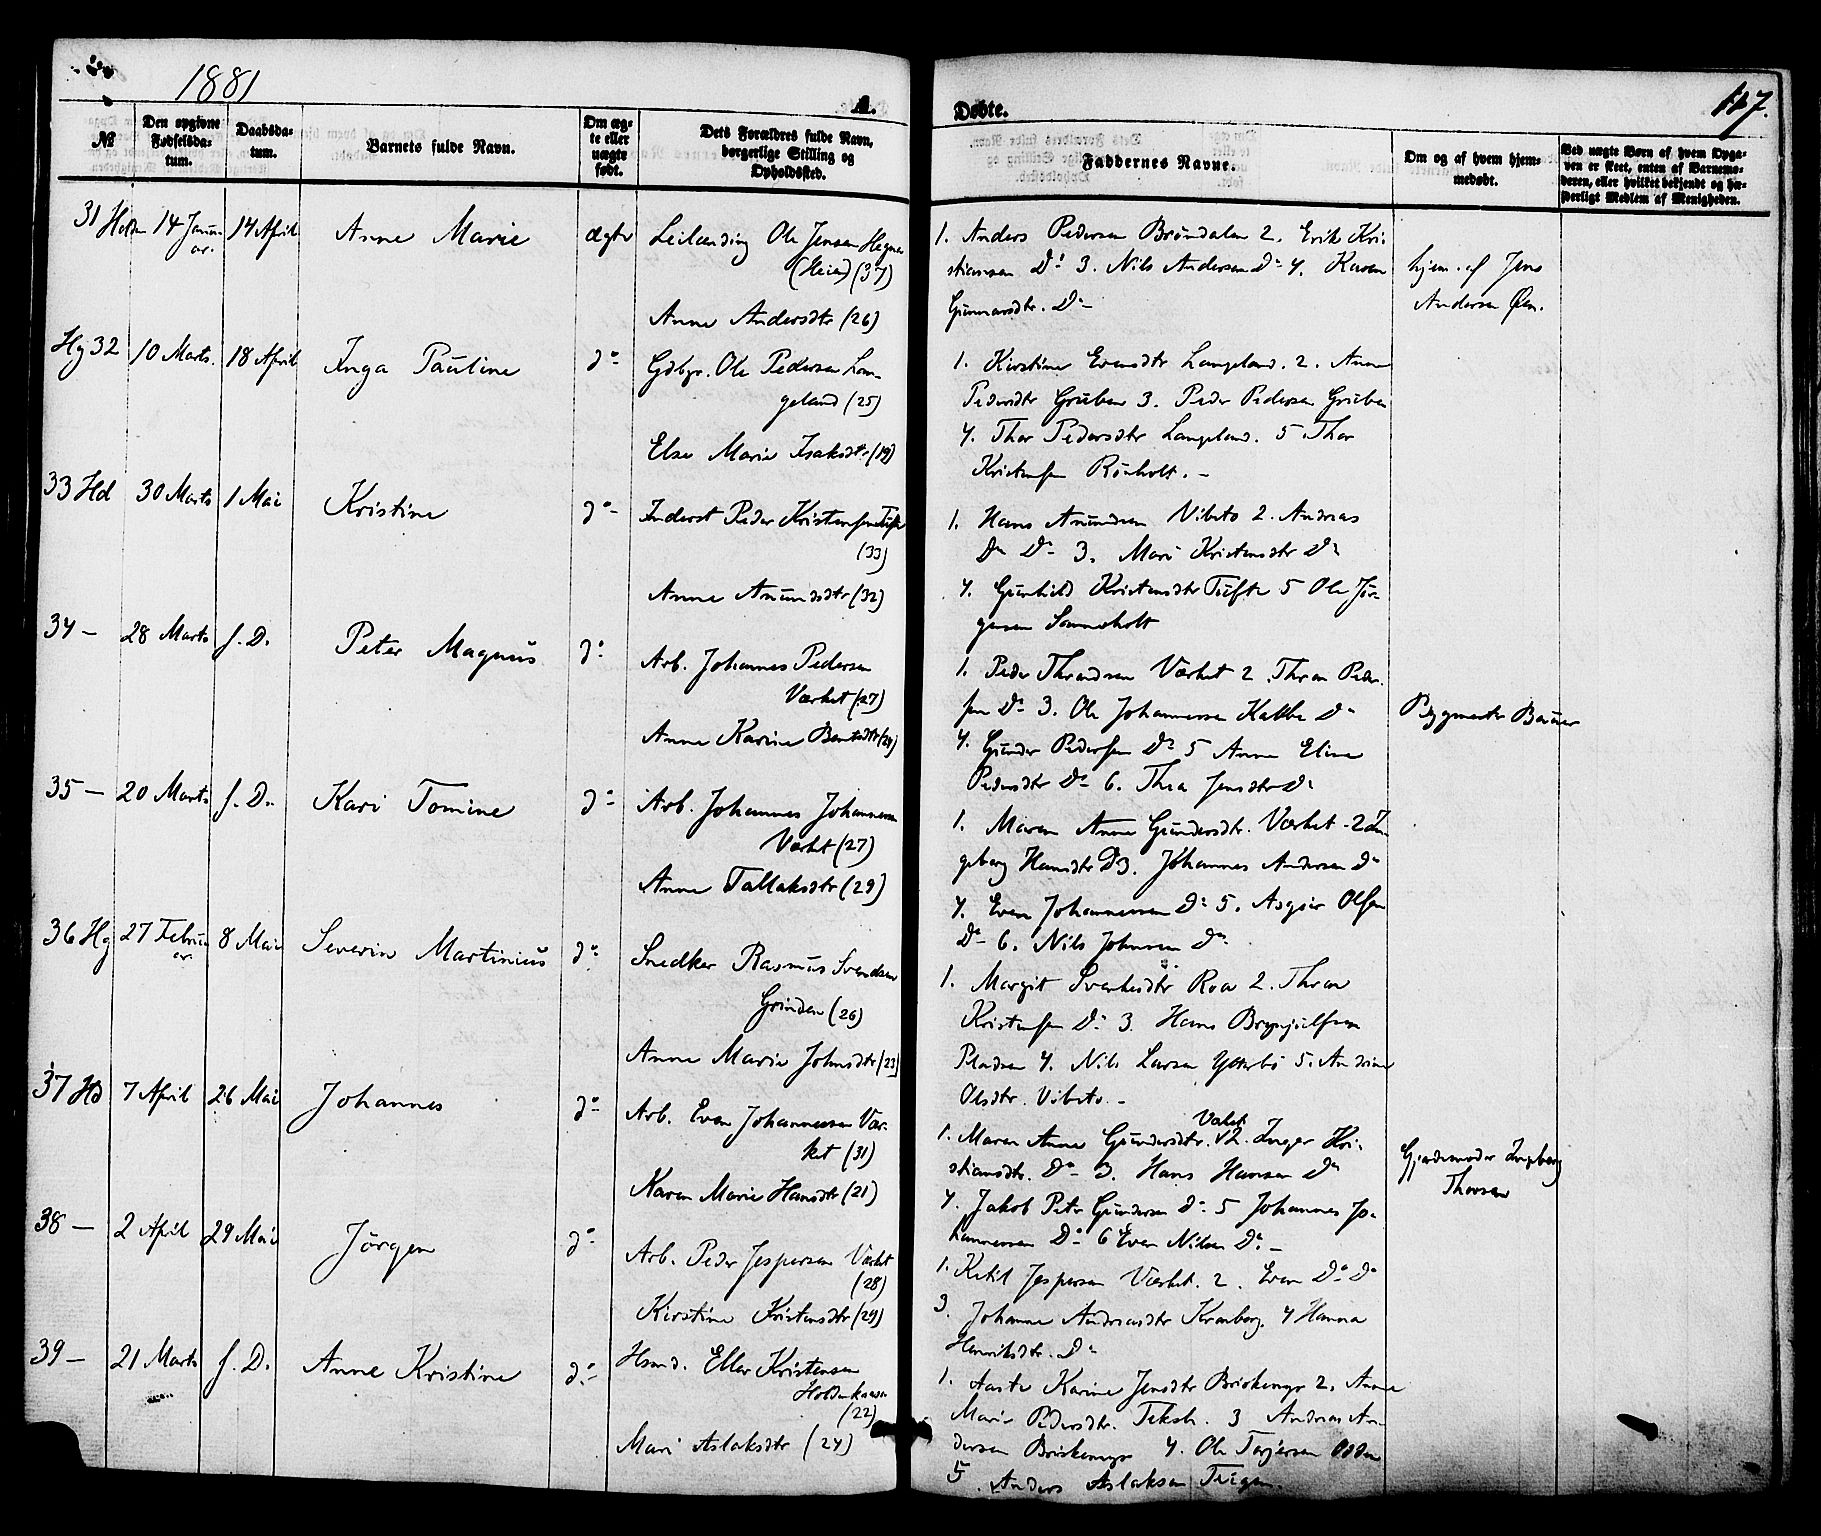 1881
A.
Døbte.
117.
№
Den opgivne Fødselsdatum.
Daabsdatum.
Barnets fulde Navn.
Om ægte eller uægte født.
Dets Forældres fulde Navn, borgerlige Stilling og Opholdssted.
Faddernes Navne.
Om og af hvem hjemmedøbt.
Ved uægte Børn af hvem Opgaven er skeet, enten af Barnemoderen, eller hvilket bekjendt og hæderligt Medlem af Menigheden.
31 Holden 14 Januar. 14 April Anne Marie ægte
Leilænding Ole Jensen Hegna
(Heia) (37)
Anne Andersdtr (26)
1. Anders Pedersen Brøndalen 2. Erik Kri-
stiansen Do 3. Nils Andersen Do 4. Karen
Gunnarsdtr. Do
hjem. af Jens
Andersen Øen.
Hg 32 10 Marts. 18 April Inga Pauline do
Gdbgr. Ole Pedersen Lan-
geland (25)
Else Marie Isaksdtr (19)
1. Kirstine Evensdtr Langeland. 2. Anne
Pedersdtr Gruben 3. Peder Pedersen Gruben
4. Thor Pedersdtr Langeland. 5 Thor
Kristensen Rønholt. -
33 Hd 30 Marts 1 Mai Kristine do
Inderst Peder Kristensen Tufte
(33)
Anne Anundsdtr (32)
1. Hans Anundsen Vibeto 2. Andreas
Do Do 3. Mari Kristensdtr Do
4. Gunhild Kristensdtr Tufte 5 Ole Jør-
gensen Sannerholt
34 - 28 Marts s. D. Peter Magnus do
Arb. Johannes Pedersen
Værket (27)
Anne Karine (29)
1. Peder Thrandsen Værket 2. Thron Peder-
sen Do 3. Ole Johannesen Kabbe Do
4. Gunder Pedersen Do 5 Anne Eline
Pedersdtr Do 6. Thea Jensdtr Do
Bygmester Bauer
35 - 20 Marts s. D. Kari Tomine do
Arb. Johannes Johannesen
Værket (27)
Anne Tallaksdtr (29)
1. Maren Anne Gundersdtr. Værket - 2 In-
geborg Hansdtr D 3. Johannes Andersen Do
4. Even Johannessen Do 5. Asgier Olsen
Do 6. Nils Johnsen Do
36 Hg 27 Februar 8 Mai Severin Martinius do
Snedker Rasmus Svendsen
Grinden (26)
Anne Marie Johnsdtr (23)
1. Margit Sverkesdtr Roa 2. Thron
Kristensen Do 3. Hans Brynjulfsen
Pladsen 4. Nils Larsen Ytterbø 5. Andrine
Olsdtr. Vibeto. -
37 Hd 7 April 26 Mai Johannes do
Arb. Even Johannessen Vær-
ket (31)
Karen Marie Hansdtr (21)
1. Maren Anne Gundersdtr. Værket 2. Inger Kri-
stiansdtr. Do 3. Hans Hansen Do
4. Jakob Peter Gundersen Do 5 Johannes Jo-
hannessen Do 6 Even Nilsen Do. -
Gjordemoder Ingeborg
Thorsen
38 - 2 April 29 Mai Jörgen do
Arb. Peder Jespersen Værket
(28)
Kirstine Kristensdtr (29)
1. Ketil Jespersen Værket. 2. Even Do Do
3. Johanne Andreasdtr Kranberg. 4 Hanna
Henriksdtr. Do
39 - 21 Marts s. D. Anne Kristine do
Hsmd. Ellef Kristensen
(22)
Mari Aslaksdtr (24)
1. Aaste Karine Jensdtr Briskemyr 2. Anne
Marie Pedersdtr. 3 Andreas An-
dersen Briskemyr 4. Ole Torjersen Odden
5. Anders Aslaksen Teigen.